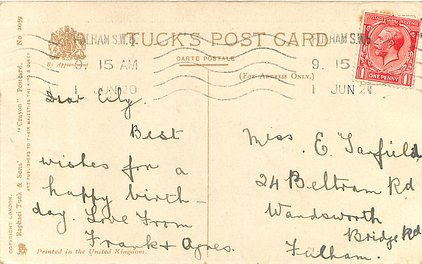 TUCK'S POST CARD
CARTE POSTALE
(FOR ADDRESS ONLY.)
By Appointment
FULHAM S.W.6
9. 15 AM
1 JUN 20
FULHAM S.W.
9. 15
1 JUN 20
1 ONE PENNY 1
COPYRIGHT LONDON.
Raphael Tuck & Sons' "Crayon" Postcard. No. 2059
ART PUBLISHERS TO THEIR MAJESTIES THE KING & QUEEN
Dear Cily.
Best
wishes for a
happy birth-
day. Love From
Frank & Agnes.
Printed in the United Kingdom.
Miss. E. Tarfield
24 Beltram Rd
Wandsworth
Bridge Rd
Fulham.